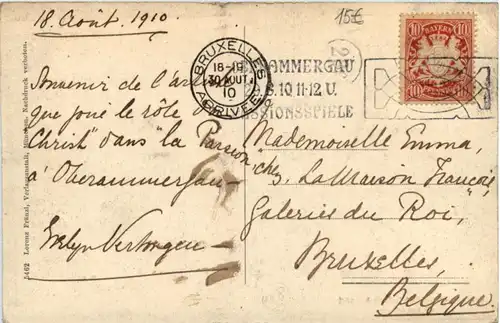 18. Août. 1910
15€
Souvenir de l'ar
que joue le rôle d
Christ" dans "la Passion"
à Oberammergau
Evelyn
BRUXELLES
18-19
30 AOUT
10
ARRIVEE
AMMERGAU
8.10.11-12 U.
SSIONSSPIELE
10 BAYERN 10
10 10
Mademoiselle Emma,
chez "La Maison François",
Galeries du Roi,
Bruxelles,
Belgique.
5462 Lorenz Fränzl, Verlagsanstalt, München. Nachdruck verboten.